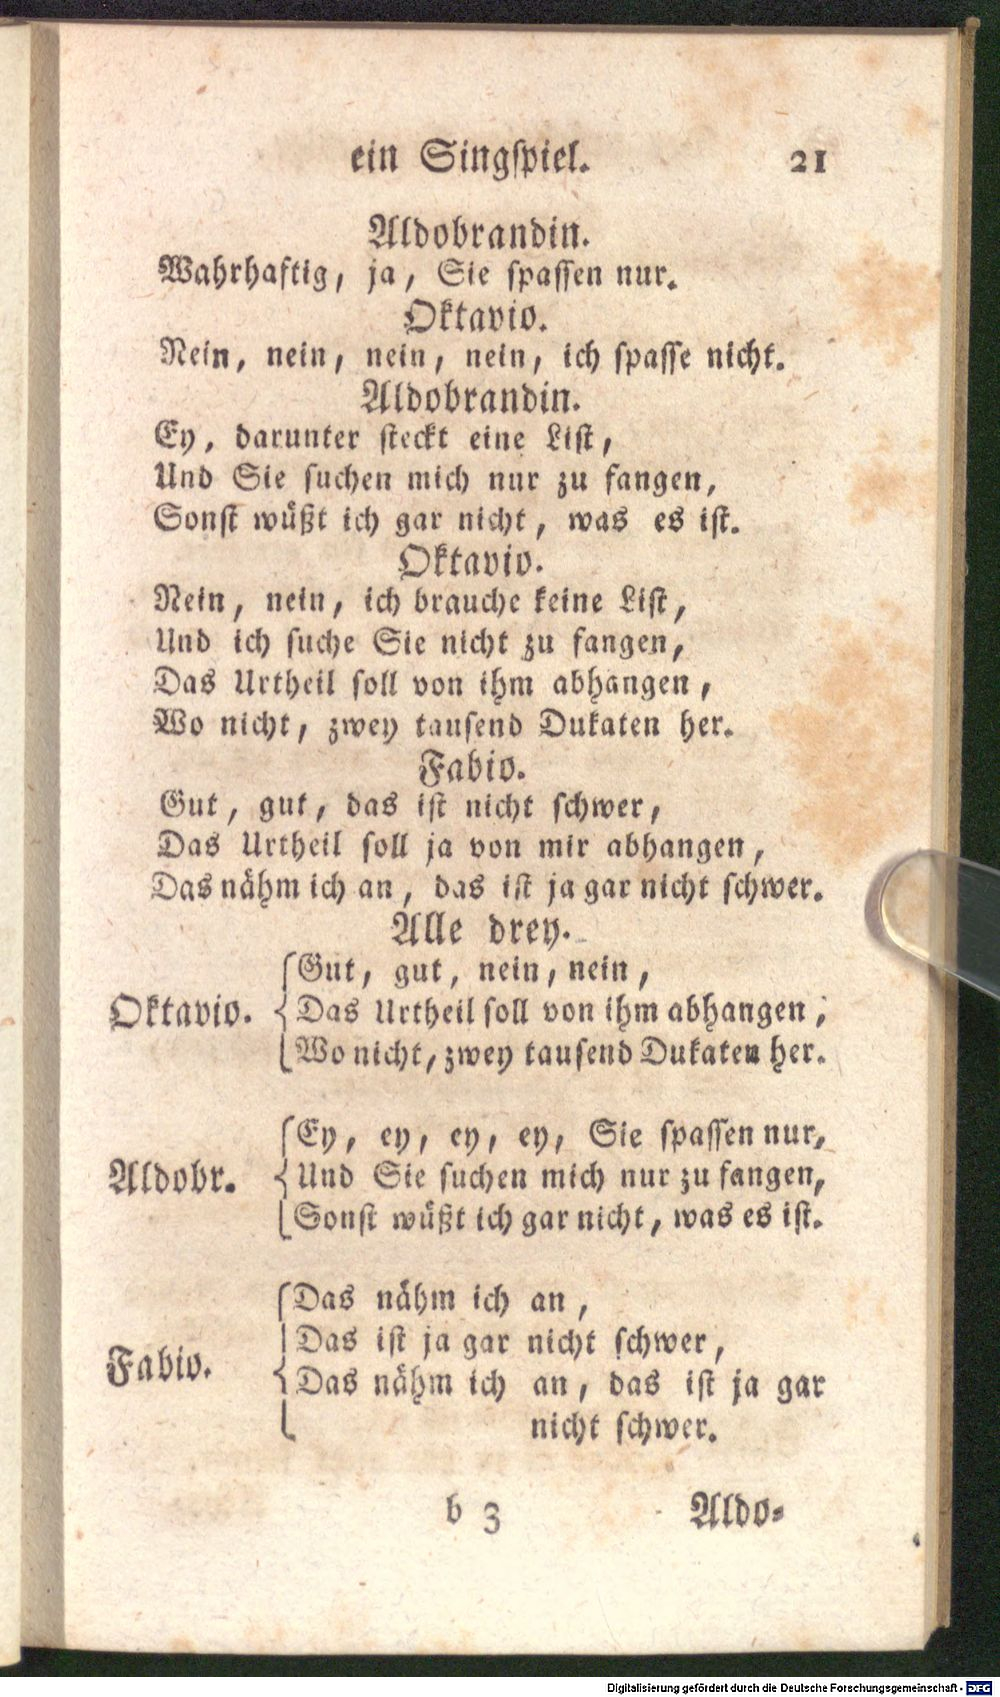 ein Singspiel. 21
Aldobrandin.
Wahrhaftig, ja, Sie spassen nur.
Oktavio.
Nein, nein, nein, nein, ich spasse nicht.
Aldobrandin.
Ey, darunter steckt eine List,
Und Sie suchen mich nur zu fangen,
Sonst wüßt ich gar nicht, was es ist.
Oktavio.
Nein, nein, ich brauche keine List,
Und ich suche Sie nicht zu fangen,
Das Urtheil soll von ihm abhangen,
Wo nicht, zwey tausend Dukaten her.
Fabio.
Gut, gut, das ist nicht schwer,
Das Urtheil soll ja von mir abhangen,
Das nähm ich an, das ist ja gar nicht schwer.
Alle drey.
Gut, gut, nein, nein,
Oktavio. Das Urtheil soll von ihm abhangen;
Wo nicht, zwey tausend Dukaten her.
Ey, ey, ey, ey, Sie spassen nur,
Aldobr. Und Sie suchen mich nur zu fangen,
Sonst wüßt ich gar nicht, was es ist.
Das nähm ich an,
Das ist ja gar nicht schwer,
Fabio. Das nähm ich an, das ist ja gar
nicht schwer.
b 3 Aldo-
Digitalisierung gefördert durch die Deutsche Forschungsgemeinschaft - DFG